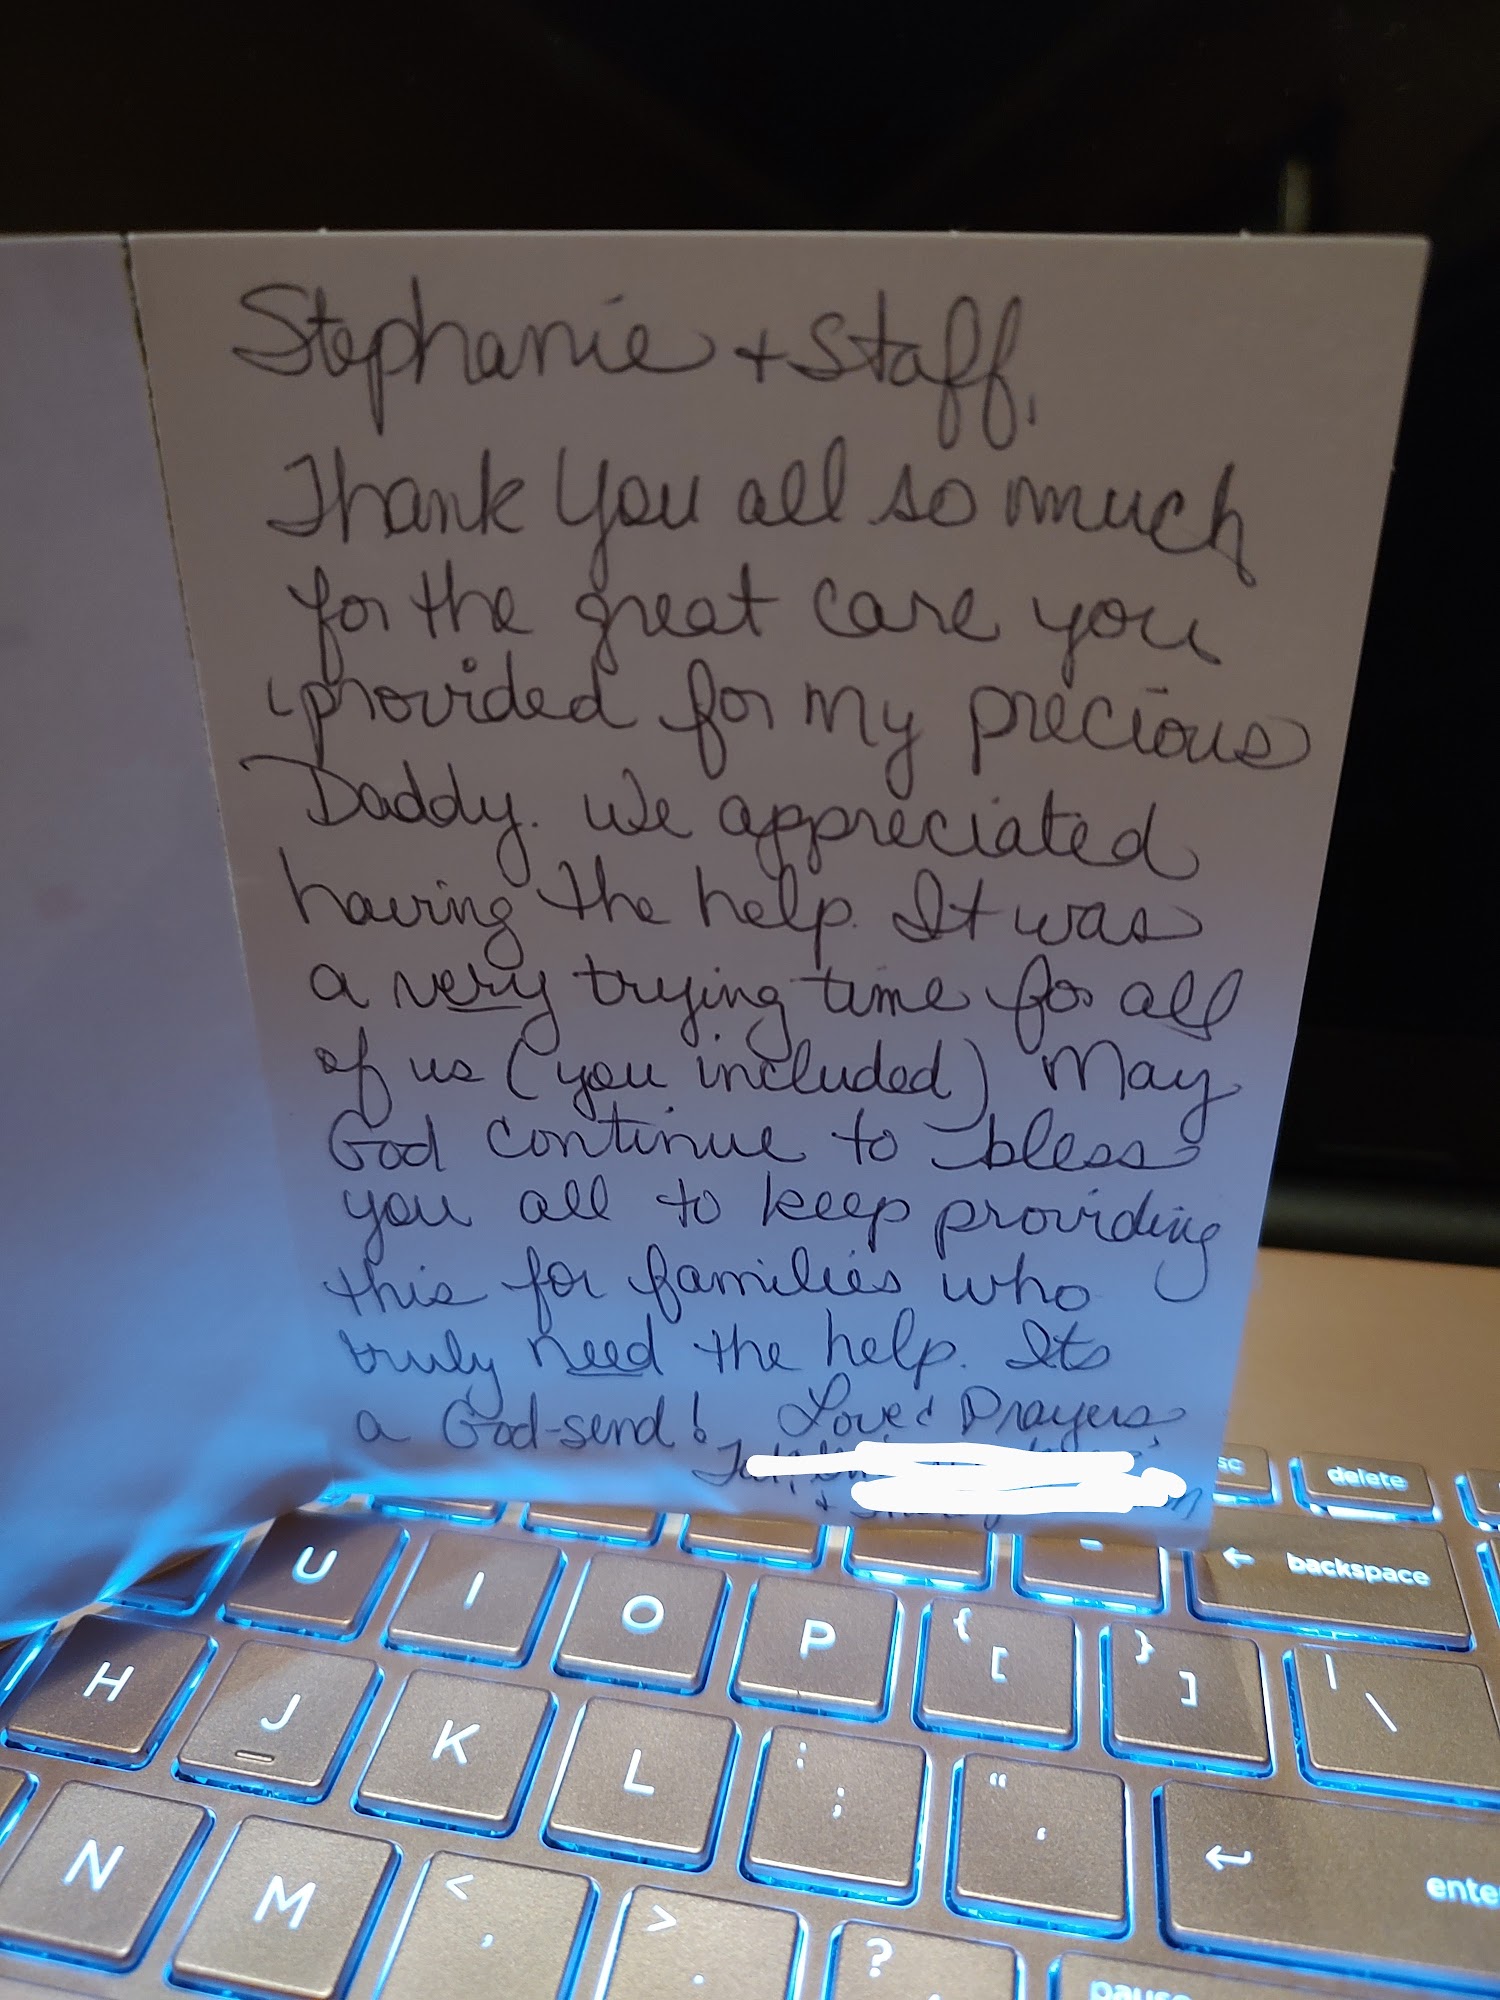 Stephanie + Staff,
Thank You all so much
for the great care you
provided for my precious
Daddy. We appreciated
having the help. It was
a very trying time for all
of us (you included) May
God continue to bless
you all to keep providing
this for families who
truly need the help. Its
a God-send! Love & Prayers,
+
sc delete
← backspace
U I O P { [ } ] | \
H J K L : ; " ' ↵ enter
N M < , > . ?
pause